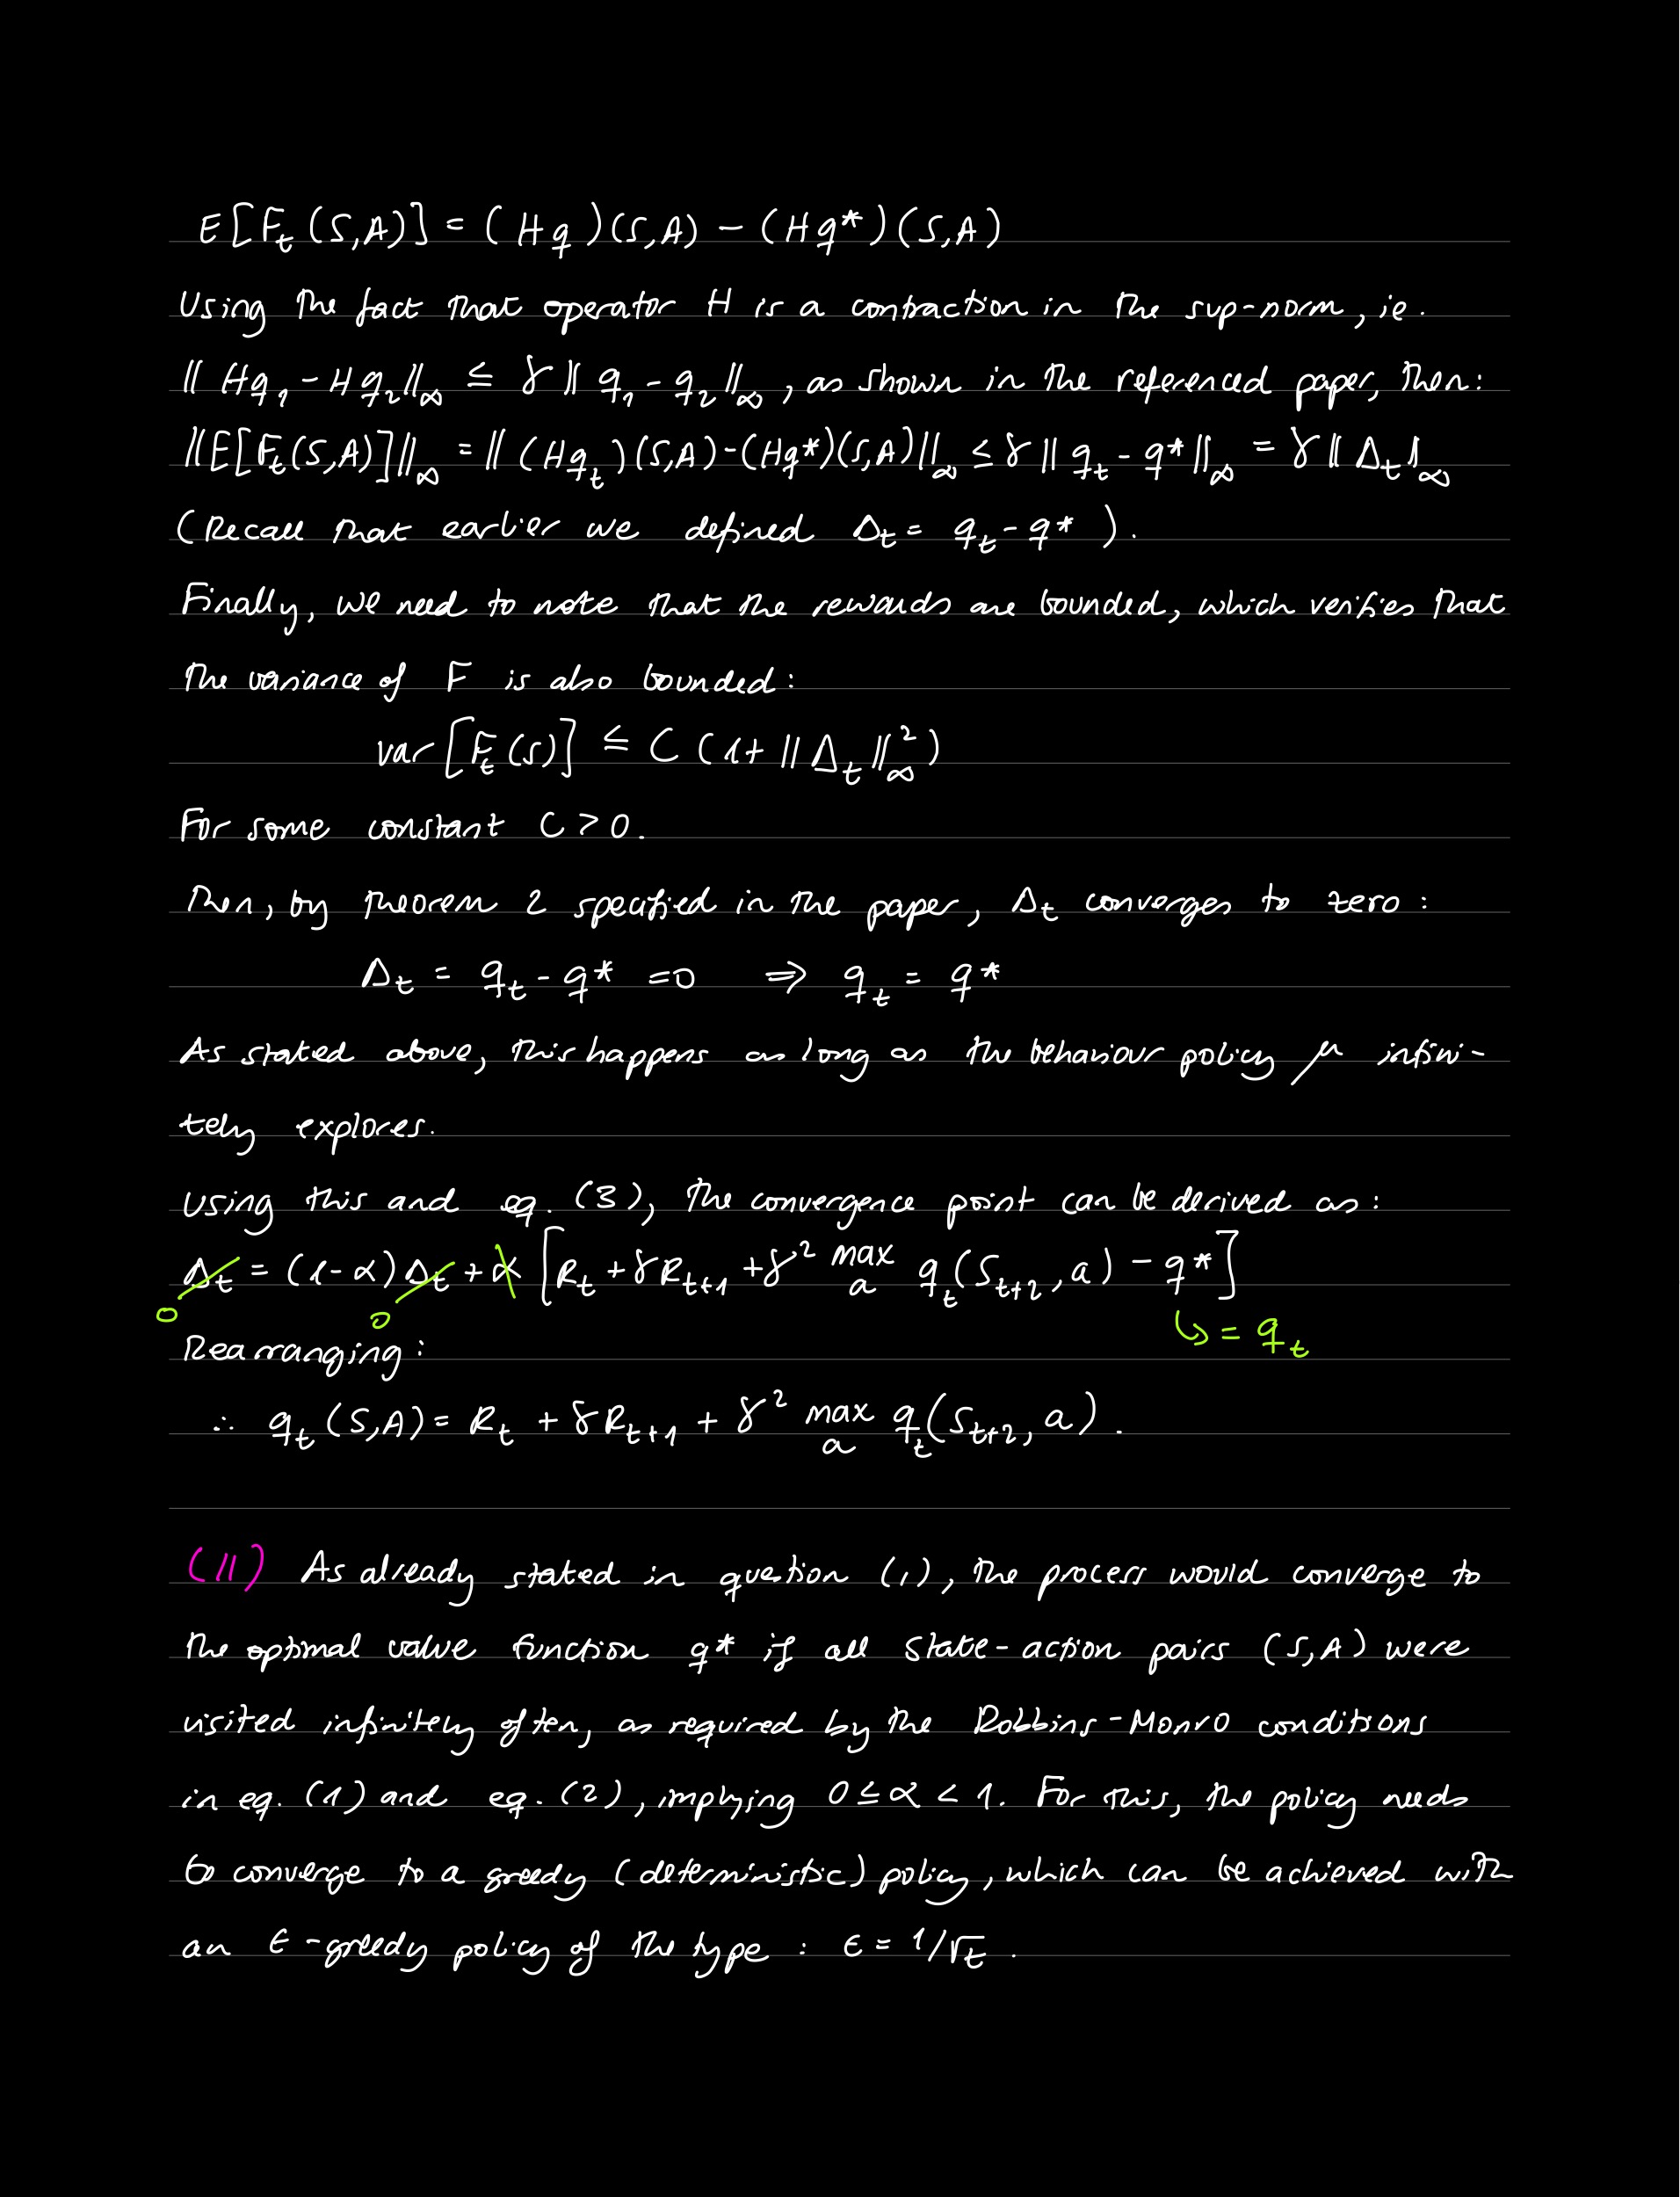 E[F_t(S,A)] = (Hq)(S,A) - (Hq*)(S,A)
Using the fact that operator H is a contraction in the sup-norm, ie.
‖Hq_1 - Hq_2‖_∞ ≤ γ‖q_1 - q_2‖_∞, as shown in the referenced paper, then:
‖E[F_t(S,A)]‖_∞ = ‖(Hq_t)(S,A) - (Hq*)(S,A)‖_∞ ≤ γ‖q_t - q*‖_∞ = γ‖Δ_t‖_∞
(Recall that earlier we defined Δ_t = q_t - q*).
Finally, we need to note that the rewards are bounded, which verifies that
the variance of F is also bounded:
var[F_t(S)] ≤ C(1+‖Δ_t‖_∞^2)
For some constant C > 0.
Then, by theorem 2 specified in the paper, Δ_t converges to zero:
Δ_t = q_t - q* = 0 ⇒ q_t = q*
As stated above, this happens as long as the behaviour policy μ infini-
tely explores.
Using this and eq. (3), the convergence point can be derived as:
Δ_t = (1-α)Δ_t + α[R_t + γR_{t+1} + γ^2 max_a q_t(S_{t+2}, a) - q*]
0 0 ↳ = q_t
Rearranging:
∴ q_t(S,A) = R_t + γR_{t+1} + γ^2 max_a q_t(S_{t+2}, a).
(II) As already stated in question (I), the process would converge to
the optimal value function q* if all state-action pairs (S,A) were
visited infinitely often, as required by the Robbins-Monro conditions
in eq. (1) and eq. (2), implying 0 ≤ α < 1. For this, the policy needs
to converge to a greedy (deterministic) policy, which can be achieved with
an ε-greedy policy of the type: ε = 1/√t.